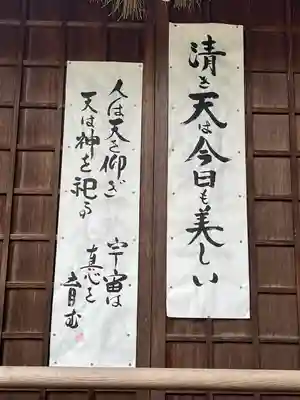 清き天は今日も美しい
人は天を仰ぎ
天は神を祀る
宇宙は
真心を
育む